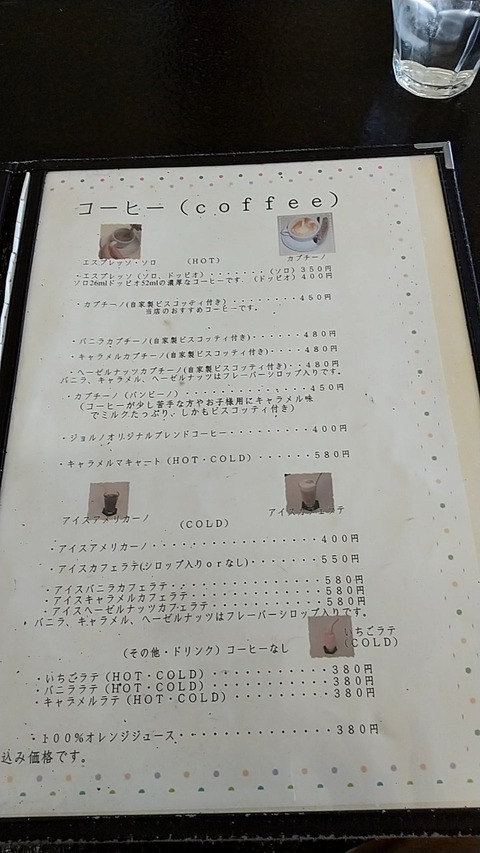 コーヒー（ｃｏｆｆｅｅ）
エスプレッソ・ソロ （HOT） カプチーノ
・エスプレッソ（ソロ、ドッピオ）・・・・・・・・（ソロ）３５０円
ソロ26mlドッピオ52mlの濃厚なコーヒーです。（ドッピオ）４００円
・カプチーノ(自家製ビスコッティ付き)・・・・・・・・４５０円
当店のおすすめコーヒーです。
・バニラカプチーノ(自家製ビスコッティ付き)・・・・・・・４８０円
・キャラメルカプチーノ(自家製ビスコッティ付き)・・・・・４８０円
・ヘーゼルナッツカプチーノ(自家製ビスコッティ付き)・・４８０円
バニラ、キャラメル、ヘーゼルナッツはフレーバーシロップ入りです。
・カプチーノ（バンビーノ）・・・・・・・・・・・・４５０円
（コーヒーが少し苦手な方やお子様用にキャラメル味
でミルクたっぷり、しかもビスコッティ付き）
・ジョルノオリジナルブレンドコーヒー・・・・・・・・４００円
・キャラメルマキャート（HOT・COLD）・・・・・・５８０円
アイスアメリカーノ アイスカフェラテ
（COLD）
・アイスアメリカーノ・・・・・・・・・・・・・・・・４００円
・アイスカフェラテ(シロップ入りｏｒなし)・・・・・・・５５０円
・アイスバニラカフェラテ・・・・・・・・・・・・・・５８０円
・アイスキャラメルカフェラテ・・・・・・・・・・・・５８０円
・アイスヘーゼルナッツカフェラテ・・・・・・・・・・５８０円
バニラ、キャラメル、ヘーゼルナッツはフレーバーシロップ入りです。
いちごラテ
（COLD）
（その他・ドリンク）コーヒーなし
・いちごラテ（HOT・COLD）・・・・・・・・・・・３８０円
・バニララテ（HOT・COLD）・・・・・・・・・・・３８０円
・キャラメルラテ（HOT・COLD）・・・・・・・・・３８０円
・１００％オレンジジュース・・・・・・・・・・・・・３８０円
込み価格です。